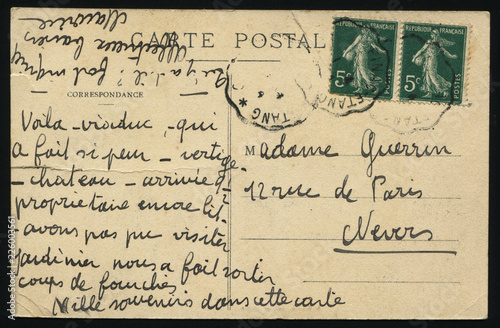 CARTE POSTALE
CORRESPONDANCE
Voila - viaduc - qui
a fait si peur - vertige
- chateau - arrivée d'
proprietaire encore lit -
- avons pas pu visiter
jardinier nous a fait sortir
coups de fourches
Mille souvenirs dans cette carte
affectueux baisers
Maurice
REPUBLIQUE FRANÇAISE
5c
REPUBLIQUE FRANÇAISE
5c
ETANG
TANG*
Madame Guerrin
12 rue de Paris
Nevers
Adobe Stock